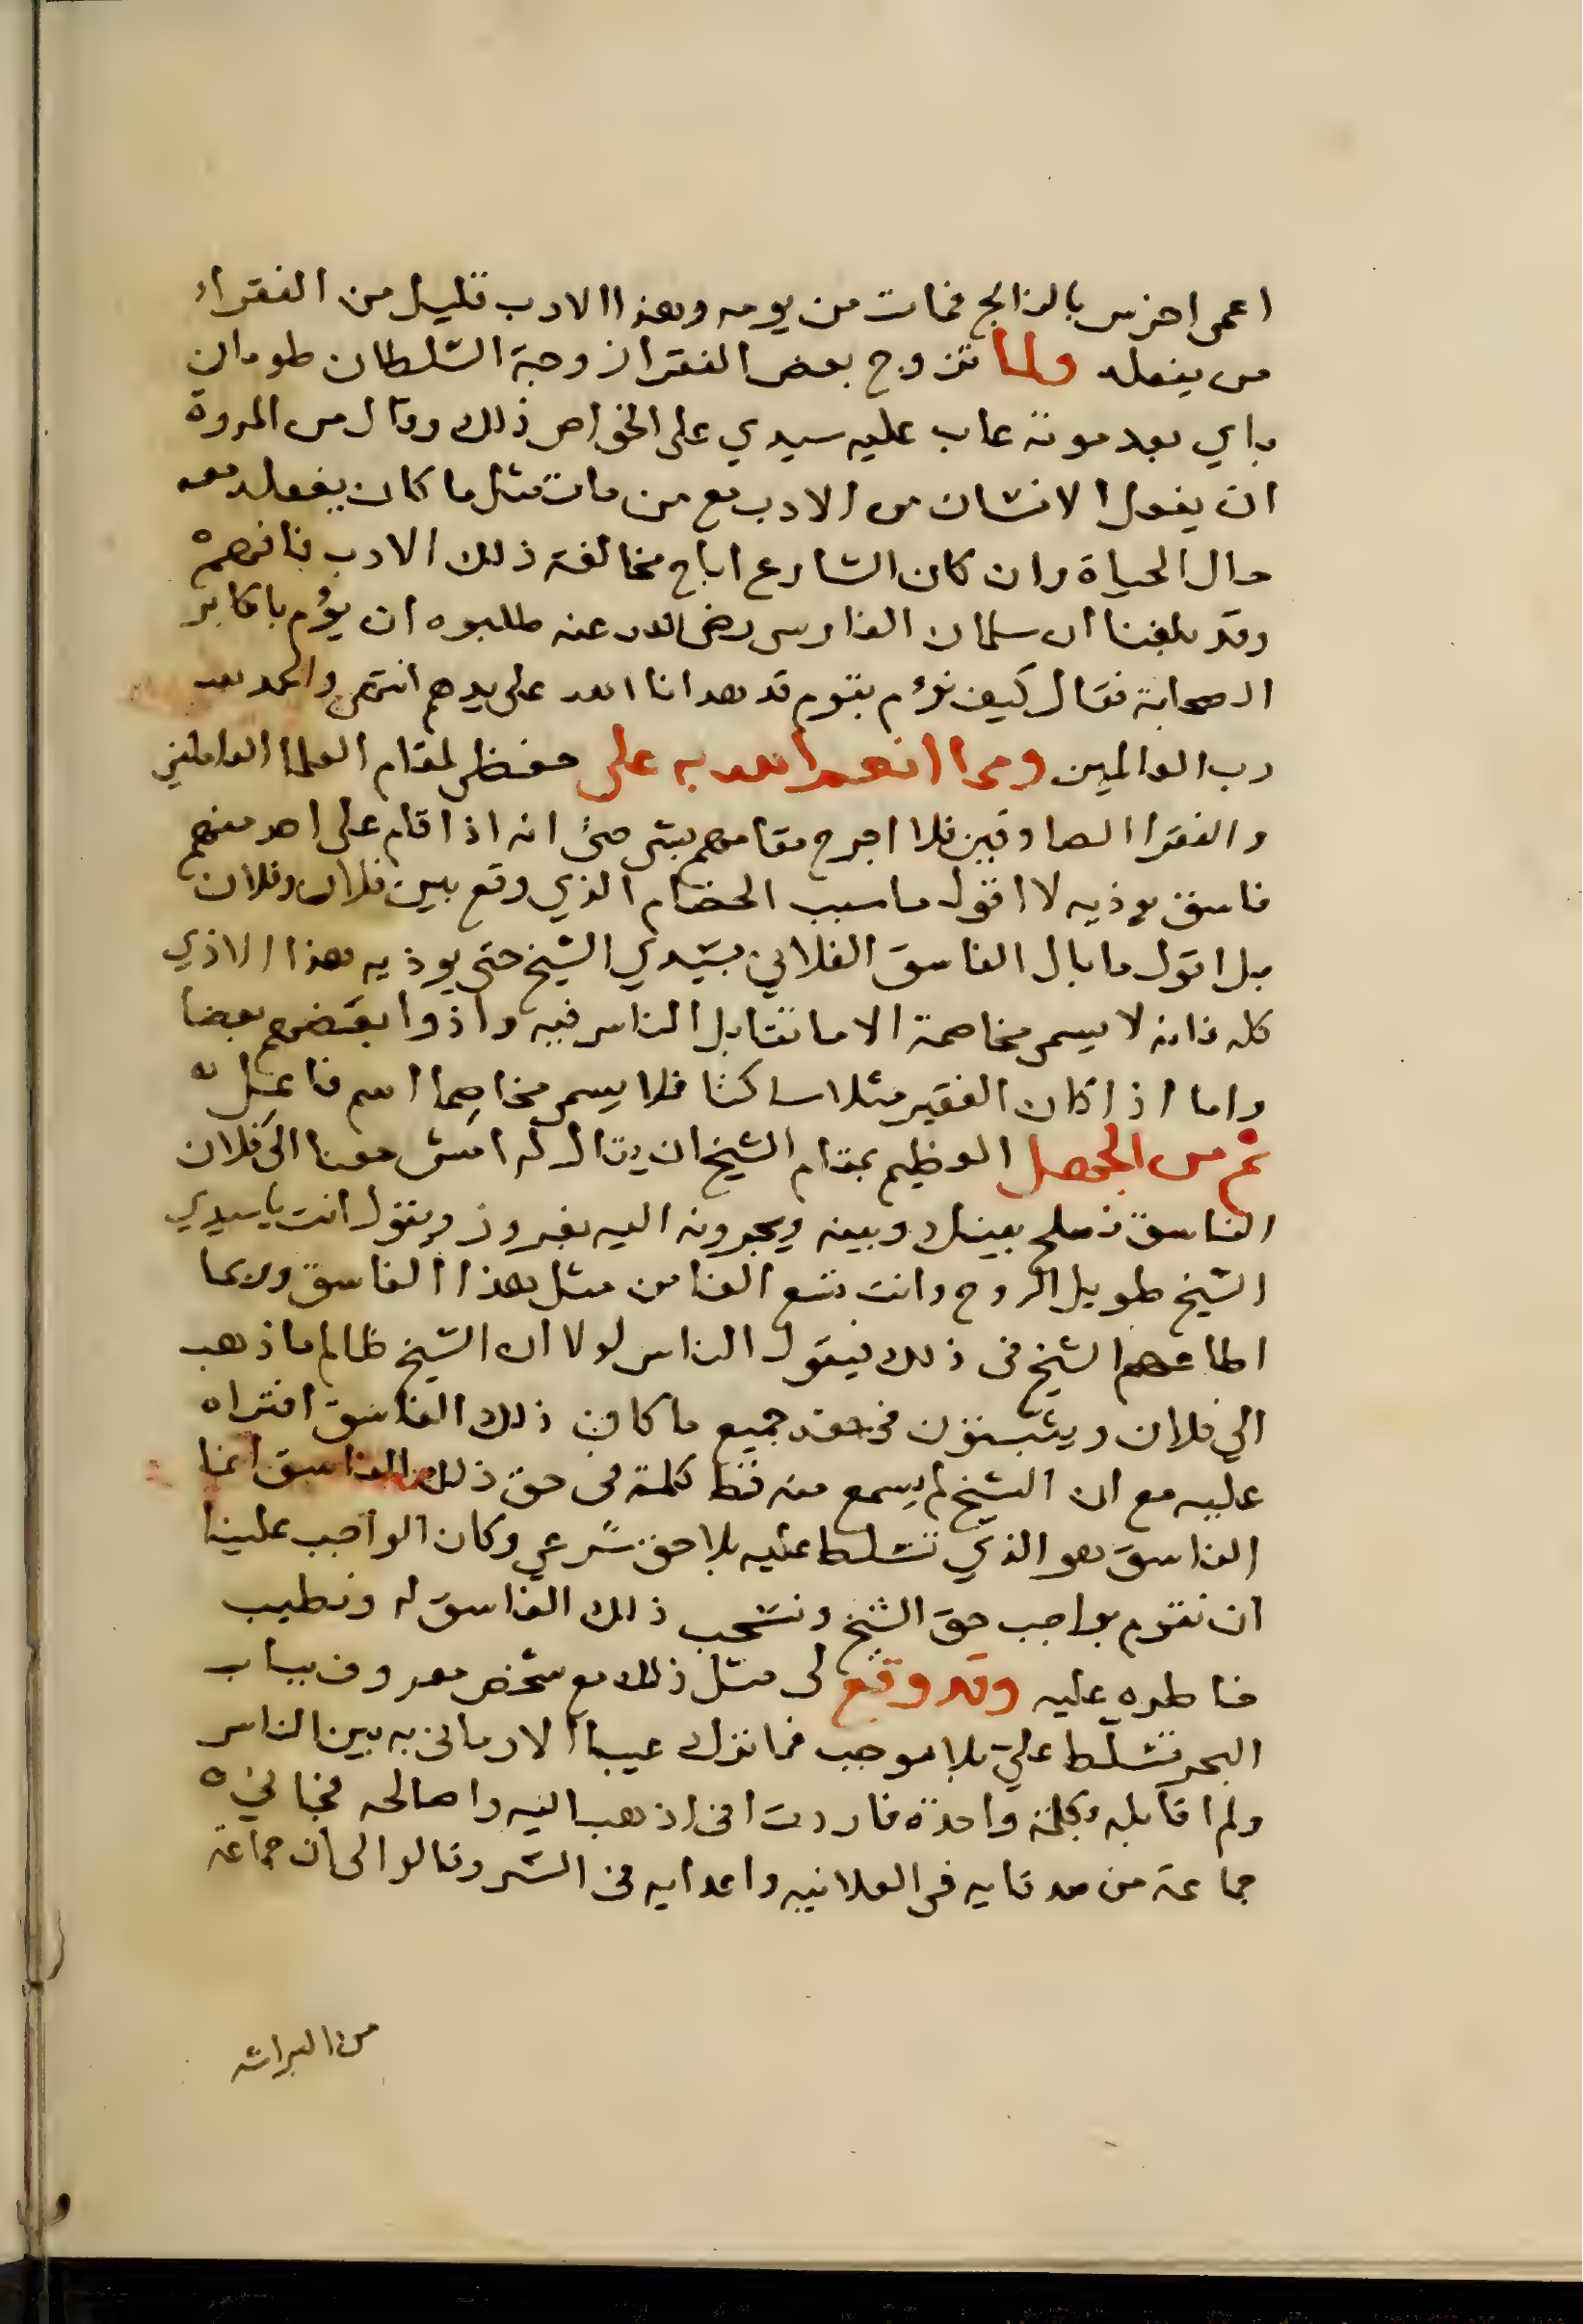 اعمى اخرس بالفالج فمات من يومه وهذا الادب قليل من الفقراء
من يفعله ولما تزوج بعض الفقرا زوجة السلطان طومان
باي بعد موته عاب عليه سيدي على الخواص ذلك وقال من المروة
ان يفعل الانسان من الادب مع من مات مثل ما كان يفعله معه
حال الحياة وان كان الشارع اباح مخالفة ذلك الادب فافهم
وقد بلغنا ان سلمان الفارسى رضى الله عنه طلبوه ان يؤم باكابر
الصحابة فقال كيف نؤم بقوم قد هدانا الله على يدهم انتهى والحمد لله
رب العالمين ومما انعم الله به على حفظى لمقام العلما العاملين
والفقرا الصادقين فلا اجرح مقامهم بشى حتى انه اذا قام على احد منهم
فاسق يوذيه لا اقول ما سبب الخصام الذي وقع بين فلان وفلان
بل اقول ما بال الفاسق الفلاني بسيدي الشيخ حتى يوذيه هذا الاذي
كله فانه لا يسمى مخاصمة الا ما تقابل الناس فيه واذوا بعضهم بعضا
واما اذا كان الفقير مثلا ساكتا فلا يسمى مخاصما اسم فاعل
ثم من الجهل العظيم بمقام الشيخ ان يقال له امش معنا الى فلان
الفاسق نصلح بينك وبينه ويجرونه اليه ويقول انت ياسيدي
الشيخ طويل الروح وانت تسع الفا من مثل هذا الفاسق وربما
اطاعهم الشيخ فى ذلك فيقول الناس لولا ان الشيخ ظالم ما ذهب
الي فلان ويثبتون فى حقه جميع ما كان ذلك الفاسق افتراه
عليه مع ان الشيخ لم يسمع منه قط كلمة فى حق ذلك الفاسق انما
الفاسق هو الذي تسلط عليه بلا حق شرعي وكان الواجب علينا
ان نقوم بواجب حق الشيخ ونسحب ذلك الفاسق له ونطيب
خاطره عليه وقد وقع لى مثل ذلك مع شخص معروف بباب
البحر تسلط علي بلا موجب فما ترك عيبا الا رمانى به بين الناس
ولم اقابله بكلمة واحدة فاردت انى اذهب اليه واصالحه فجانى
جماعة من صدقايه فى العلانيه واعدايه فى السر وقالوا لى ان جماعة